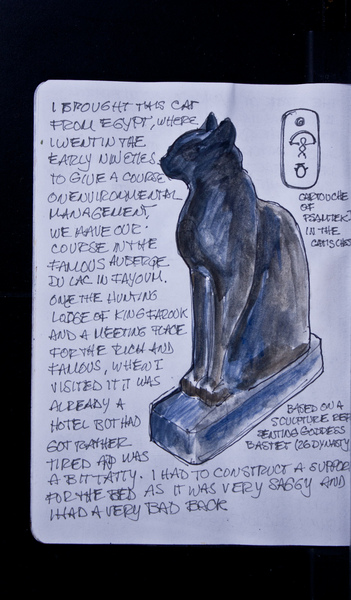 I BROUGHT THIS CAT
FROM EGYPT, WHERE
I WENT IN THE
EARLY NINETIES
TO GIVE A COURSE
ON ENVIRONMENTAL
MANAGEMENT,
WE HAVE OUR
COURSE IN THE
FAMOUS AUBERGE
DU LAC IN FAYOUM.
ONE THE HUNTING
LODGE OF KING FAROUK
AND A MEETING PLACE
FOR THE RICH AND
FAMOUS, WHEN I
VISITED IT IT WAS
ALREADY A
HOTEL BOT HAD
GOT RATHER
TIRED AND WAS
A BIT TATTY. I HAD TO CONSTRUCT A SUPPOR
FOR THE BED AS IT WAS VERY SAGGY AND
I HAD A VERY BAD BACK
CARTOUCHE
OF
PSAMTEK
IN THE
BASED ON A
SCULPTURE REP
SENTING GODDESS
BASTET (26 DYNASTY